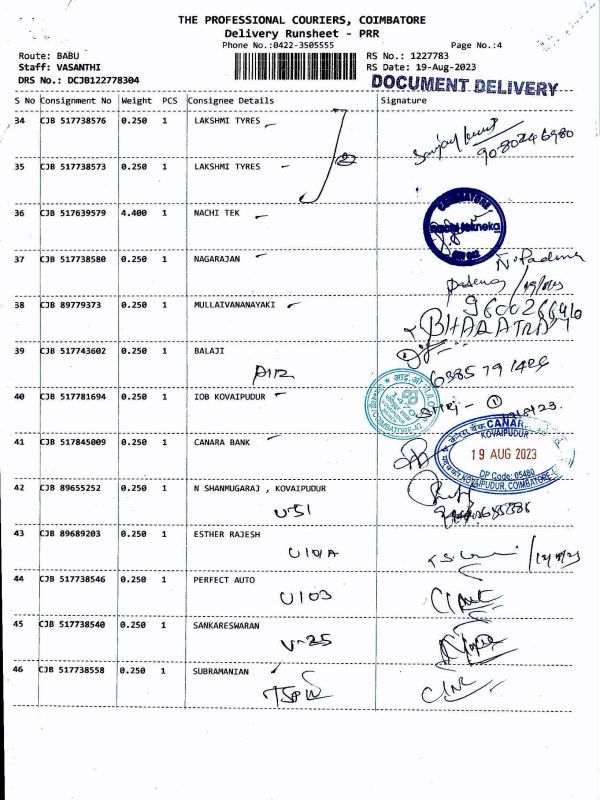 THE PROFESSIONAL COURIERS, COIMBATORE
Delivery Runsheet - PRR
Phone No.:0422-3505555
Page No.:4
Route: BABU
RS No.: 1227783
Staff: VASANTHI
RS Date: 19-Aug-2023
DRS No.: DCJB122778304
DOCUMENT DELIVERY
S No Consignment No Weight PCS Consignee Details Signature
34 CJB 517738576 0.250 1 LAKSHMI TYRES
35 CJB 517738573 0.250 1 LAKSHMI TYRES
36 CJB 517639579 4.400 1 NACHI TEK
COIMBATORE
37 CJB 517738580 0.250 1 NAGARAJAN
N. Padma
38 CJB 89779373 0.250 1 MULLAIVANANAYAKI
39 CJB 517743602 0.250 1 BALAJI
40 CJB 517781694 0.250 1 IOB KOVAIPUDUR
41 CJB 517845009 0.250 1 CANARA BANK
KOVAIPUDUR
19 AUG 2023
DP Code: 05480
KOVAIPUDUR, COIMBATORE
42 CJB 89655252 0.250 1 N SHANMUGARAJ , KOVAIPUDUR
U-51
43 CJB 89689203 0.250 1 ESTHER RAJESH
U101A
44 CJB 517738546 0.250 1 PERFECT AUTO
U103
45 CJB 517738540 0.250 1 SANKARESWARAN
V-25
46 CJB 517738558 0.250 1 SUBRAMANIAN